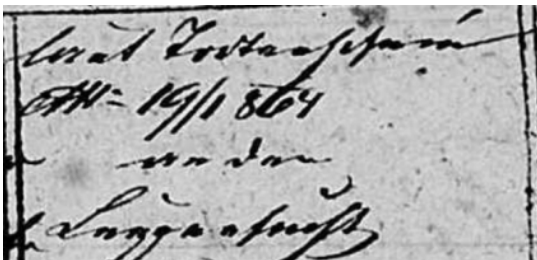 laut Todtenschein
19/1 864
an der
Lungensucht